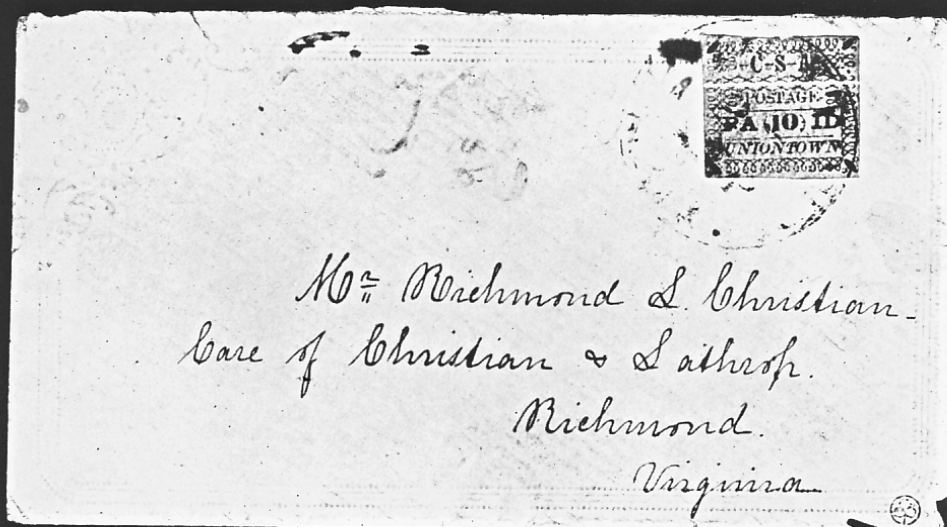 C-S-A
POSTAGE
PA 10 ID
UNIONTOWN
Mr. Richmond L. Christian-
Care of Christian & Lathrop.
Richmond.
Virginia